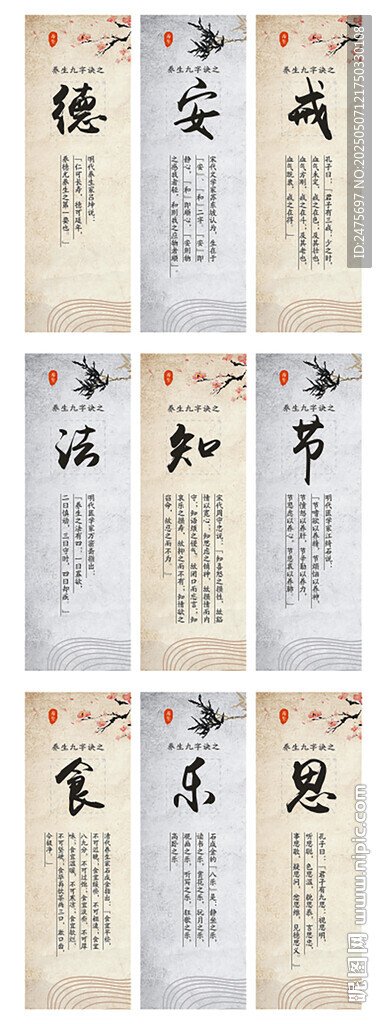 养生九字诀之
德
明代养生家吕坤说：
「仁可长寿，德可延年，
养德尤养生之第一要也。」
养生九字诀之
安
宋代文学家苏东坡认为，生在于
「安」、「和」二字，「安」即
静心，「和」即顺心，「安则物
之感我者轻，和则我之应物者顺」
养生九字诀之
戒
孔子曰：「君子有三戒：少之时，
血气未定，戒之在色；及其壮也，
血气方刚，戒之在斗；及其老也，
血气既衰，戒之在得。」
养生九字诀之
法
明代医学家万密斋指出：
「养生之法有四：一曰寡欲，
二曰慎动，三曰守时，四曰却疾」
养生九字诀之
知
宋代周守忠说：「知喜怒之损性，故豁
情以宽心；知思虑之销神，故损情而内
守；知语烦之侵气，故闭口而忘言；知
哀乐之损寿，故抑之而不有；知情欲之
窃命，故忍之而不为。」
养生九字诀之
节
明代医学家江绮石说：
「节嗜欲以养精，节烦恼以养神，
节愤怒以养肝，节辛勤以养力，
节思虑以养心，节悲哀以养肺」
养生九字诀之
食
清代养生家石成金指出：「食宜早些，
不可迟晚，食宜缓些，不可粗速；食宜
八九分，不可过饱；食宜淡些，不可厚
味；食宜温暖，不可寒凉；食宜软烂，
不可坚硬。食毕再饮茶两三口，漱口齿，
令极净。」
养生九字诀之
乐
石成金的「八乐」是：静坐之乐，
读书之乐，赏花之乐，玩月之乐，
观画之乐，听写之乐，狂歌之乐，
高卧之乐
养生九字诀之
思
孔子曰：「君子有九思：视思明，
听思聪，色思温，貌思恭，言思忠，
事思敬，疑思问，忿思难，见得思义」
ID:2475697 NO:20250507121750330108
昵图网 www.nipic.com